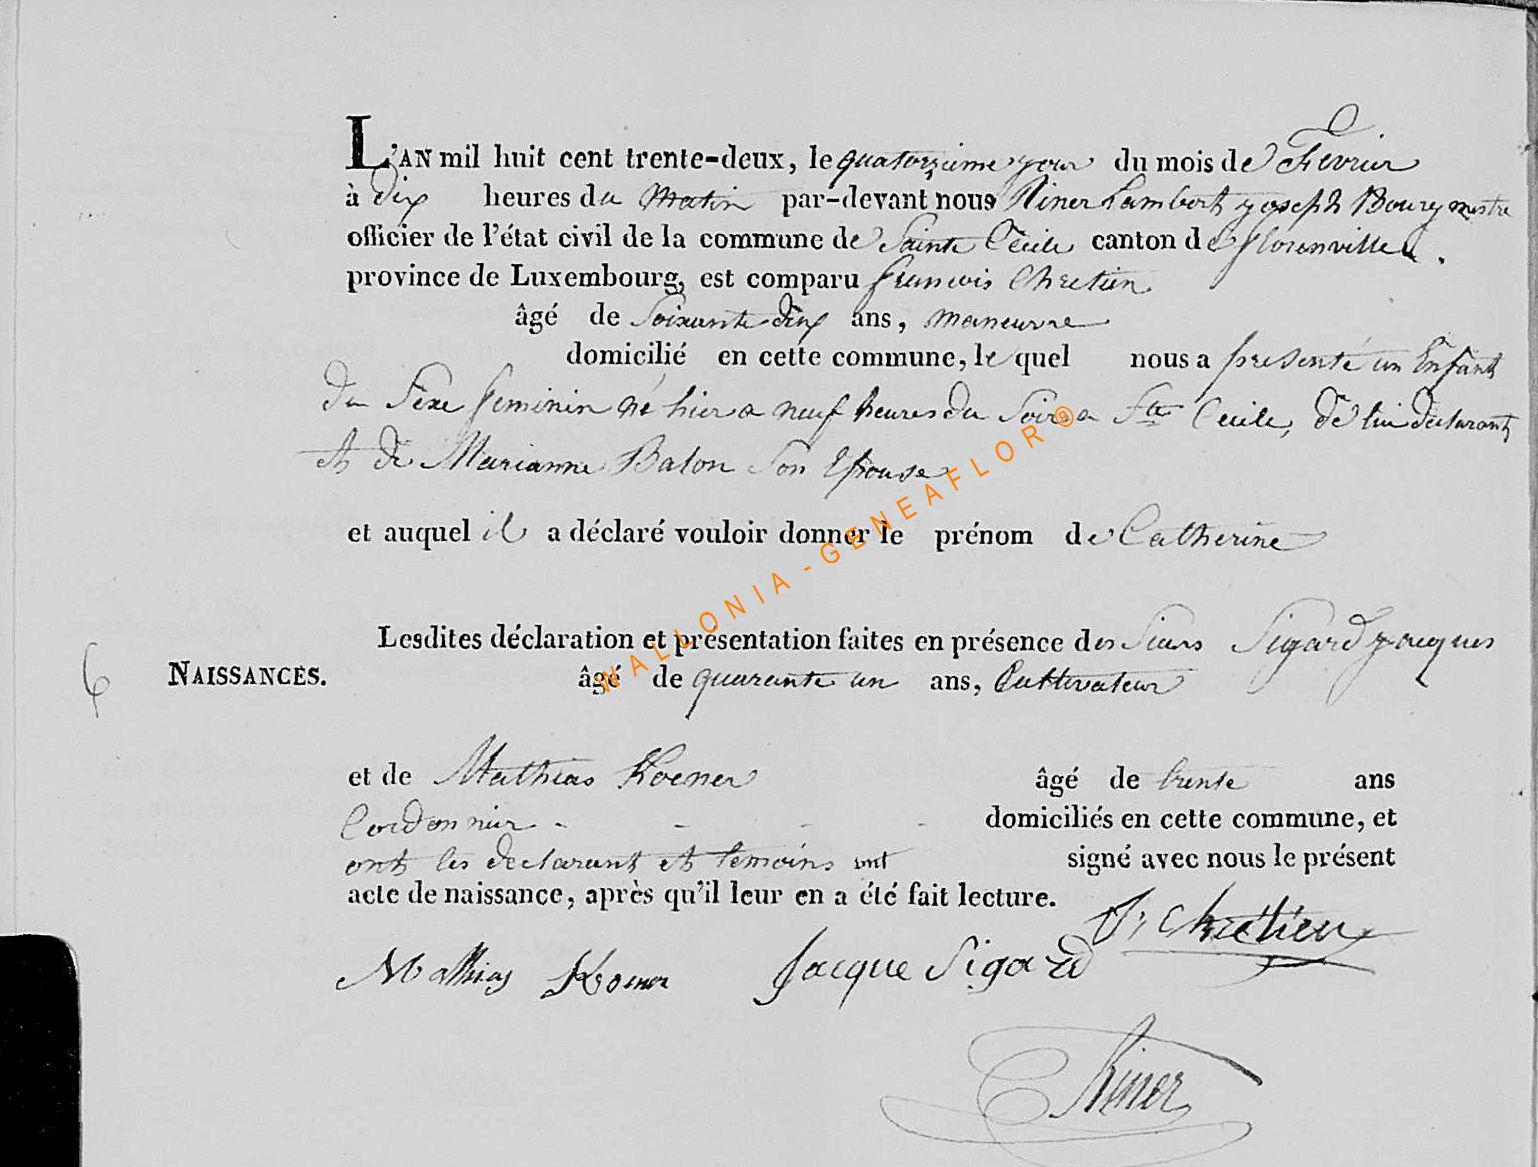 L'AN mil huit cent trente-deux, le quatorzieme jour du mois de Fevrier
à dix heures du Matin par-devant nous Riner Lambert joseph Bourgmestre
officier de l'état civil de la commune de Sainte Cecile canton de florenville.
province de Luxembourg, est comparu françois Chretien
âgé de Soixante dix ans, maneuvre
domicilié en cette commune, le quel nous a presenté un Enfant
du Sexe feminin né hier a neuf heures du Soir a Ste Cecile, de lui declarant
et de Marianne Balon Son Epouse
et auquel il a déclaré vouloir donner le prénom de Catherine
Lesdites déclaration et présentation faites en présence des Sieurs Sigard jacques
6 NAISSANCES. âgé de quarante un ans, Cultivateur
et de Mathias Koener âgé de trente ans
Cordonnier - - - - domiciliés en cette commune, et
ont les declarant et temoins ont signé avec nous le présent
acte de naissance, après qu'il leur en a été fait lecture.
fr Chrétien
Mathias Koener Jacque Sigard
Riner
WALLONIA-GENEAFLOR®